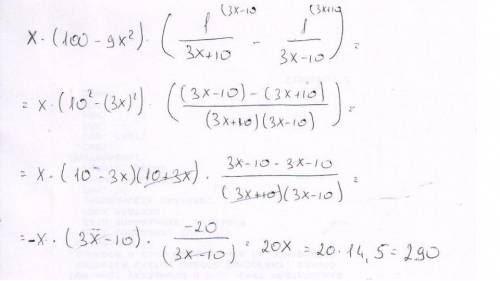 x · (100 - 9x²) · ( 1/(3x+10) ^(3x-10 - 1/(3x-10) ^(3x+10 ) =
= x · (10² - (3x)²) · ( ((3x-10) - (3x+10)) / ((3x+10)(3x-10)) ) =
= x · (10 - 3x)(10+3x) · (3x-10-3x-10) / ((3x+10)(3x-10)) =
= -x · (3x-10) · -20/(3x-10) = 20x = 20·14,5 = 290